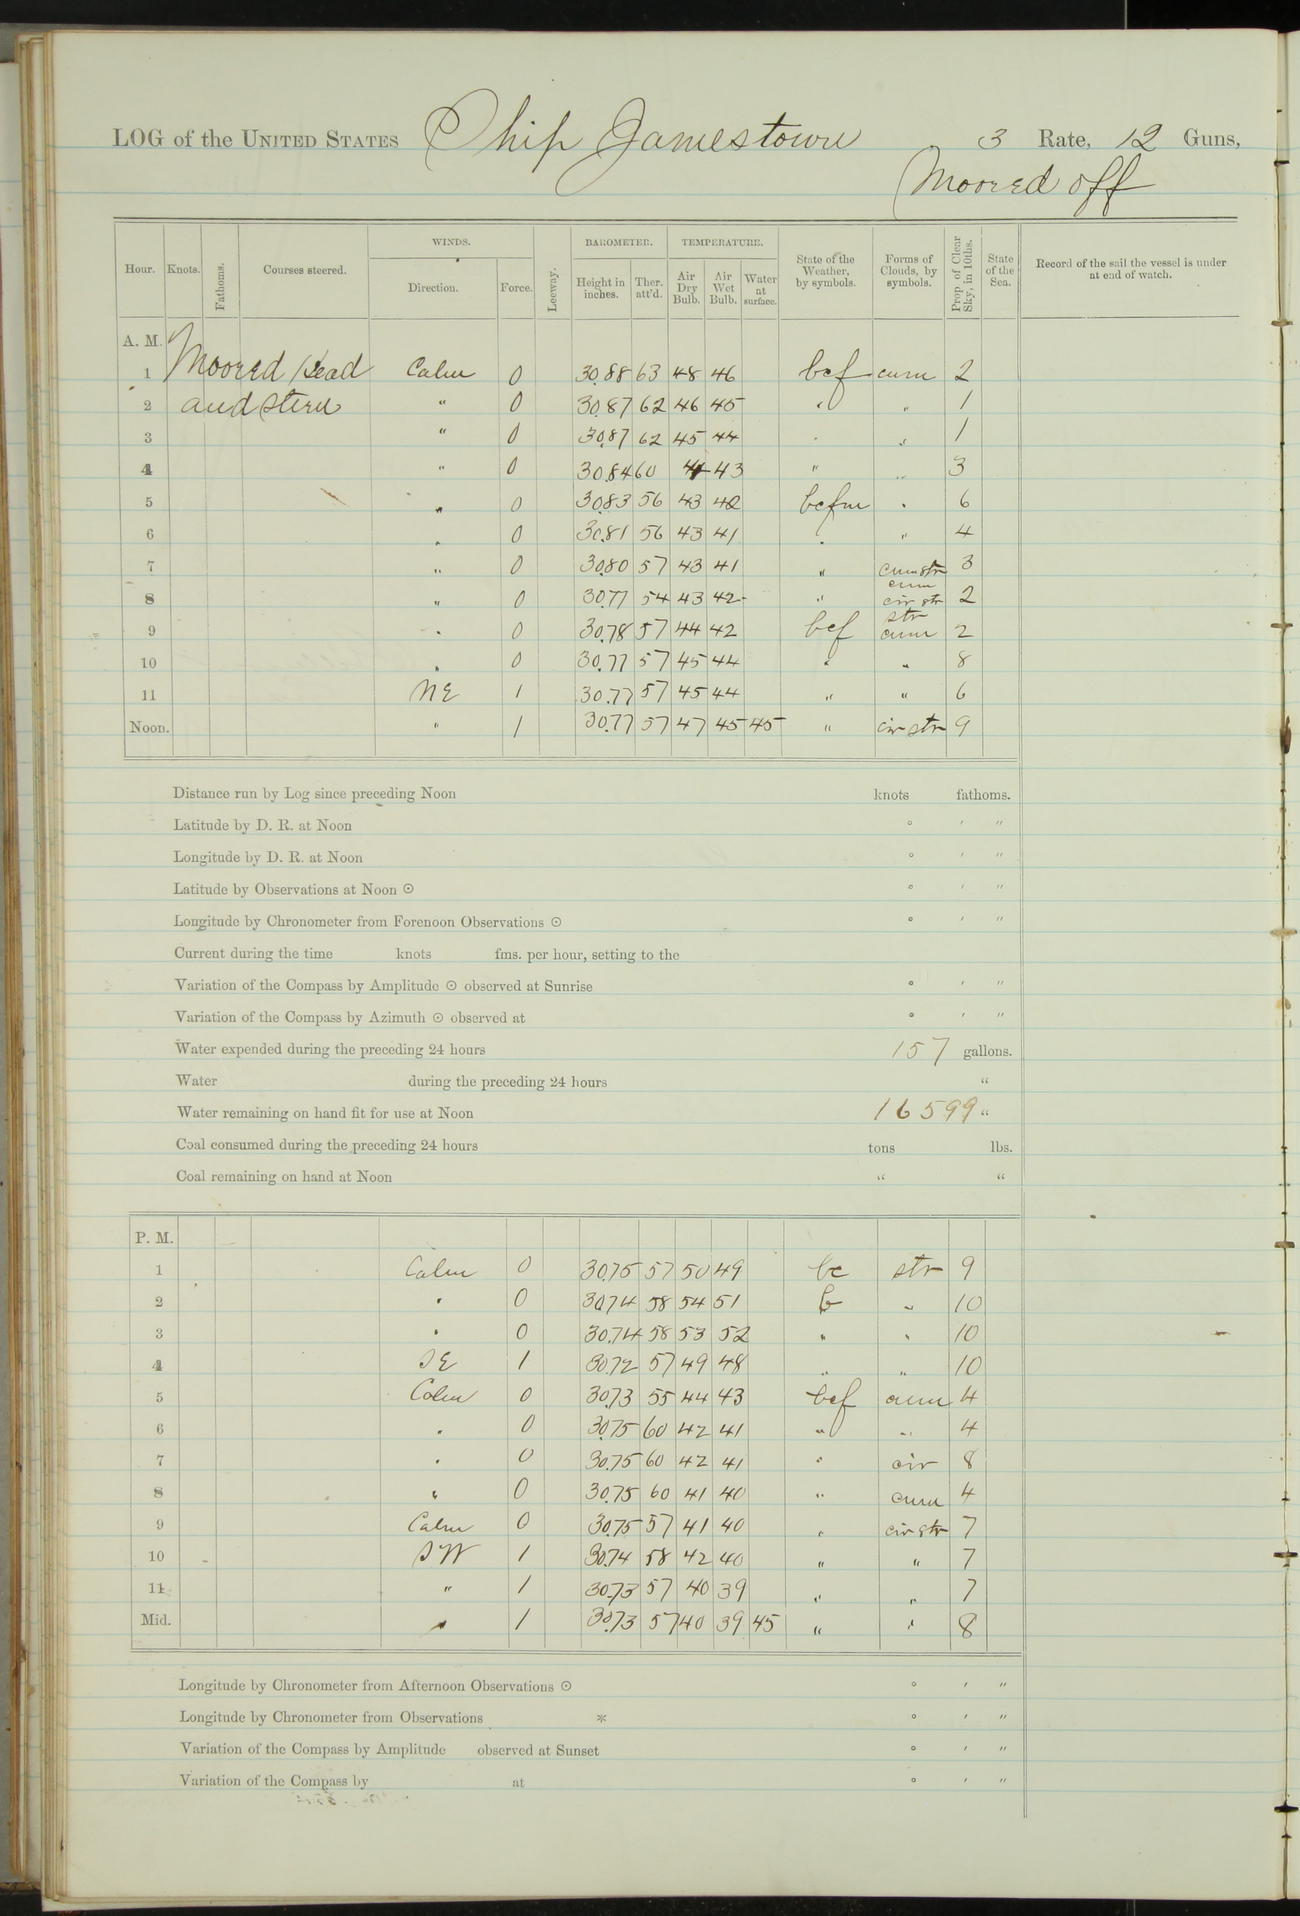 LOG of the UNITED STATES Ship Jamestown 3 Rate, 12 Guns,
Moored off
WINDS. BAROMETER. TEMPERATURE.
Hour. Knots. Fathoms. Courses steered. Direction. Force. Leeway. Height in inches. Ther. att'd. Air Dry Bulb. Air Wet Bulb. Water at surface. State of the Weather, by symbols. Forms of Clouds, by symbols. Prop. of Clear Sky, in 10ths. State of the Sea. Record of the sail the vessel is under at end of watch.
A. M.
1 Moored Head Calm 0 30.88 63 48 46 bcf cum 2
2 and stern " 0 30.87 62 46 45 " " 1
3 " 0 30.87 62 45 44 " " 1
4 " 0 30.84 60 44 43 " " 3
5 " 0 30.83 56 43 42 bcfm " 6
6 " 0 30.81 56 43 41 " " 4
7 " 0 30.80 57 43 41 " cum str 3
8 " 0 30.77 54 43 42 " cum cir str 2
9 " 0 30.78 57 44 42 bcf str cum 2
10 " 0 30.77 57 45 44 " " 8
11 NE 1 30.77 57 45 44 " " 6
Noon. " 1 30.77 57 47 45 45 " cir str 9
Distance run by Log since preceding Noon knots fathoms.
Latitude by D. R. at Noon ° ′ ″
Longitude by D. R. at Noon ° ′ ″
Latitude by Observations at Noon ☉ ° ′ ″
Longitude by Chronometer from Forenoon Observations ☉ ° ′ ″
Current during the time knots fms. per hour, setting to the
Variation of the Compass by Amplitude ☉ observed at Sunrise ° ′ ″
Variation of the Compass by Azimuth ☉ observed at ° ′ ″
Water expended during the preceding 24 hours 157 gallons.
Water during the preceding 24 hours "
Water remaining on hand fit for use at Noon 16599 "
Coal consumed during the preceding 24 hours tons lbs.
Coal remaining on hand at Noon " "
P. M.
1 Calm 0 30.75 57 50 49 bc str 9
2 " 0 30.74 58 54 51 b " 10
3 " 0 30.74 58 53 52 " " 10
4 SE 1 30.72 57 49 48 " " 10
5 Calm 0 30.73 55 44 43 bcf cum 4
6 " 0 30.75 60 42 41 " " 4
7 " 0 30.75 60 42 41 " cir 8
8 " 0 30.75 60 41 40 " cum 4
9 Calm 0 30.75 57 41 40 " cir str 7
10 SW 1 30.74 58 42 40 " " 7
11 " 1 30.73 57 40 39 " " 7
Mid. " 1 30.73 57 40 39 45 " " 8
Longitude by Chronometer from Afternoon Observations ☉ ° ′ ″
Longitude by Chronometer from Observations * ° ′ ″
Variation of the Compass by Amplitude observed at Sunset ° ′ ″
Variation of the Compass by at ° ′ ″